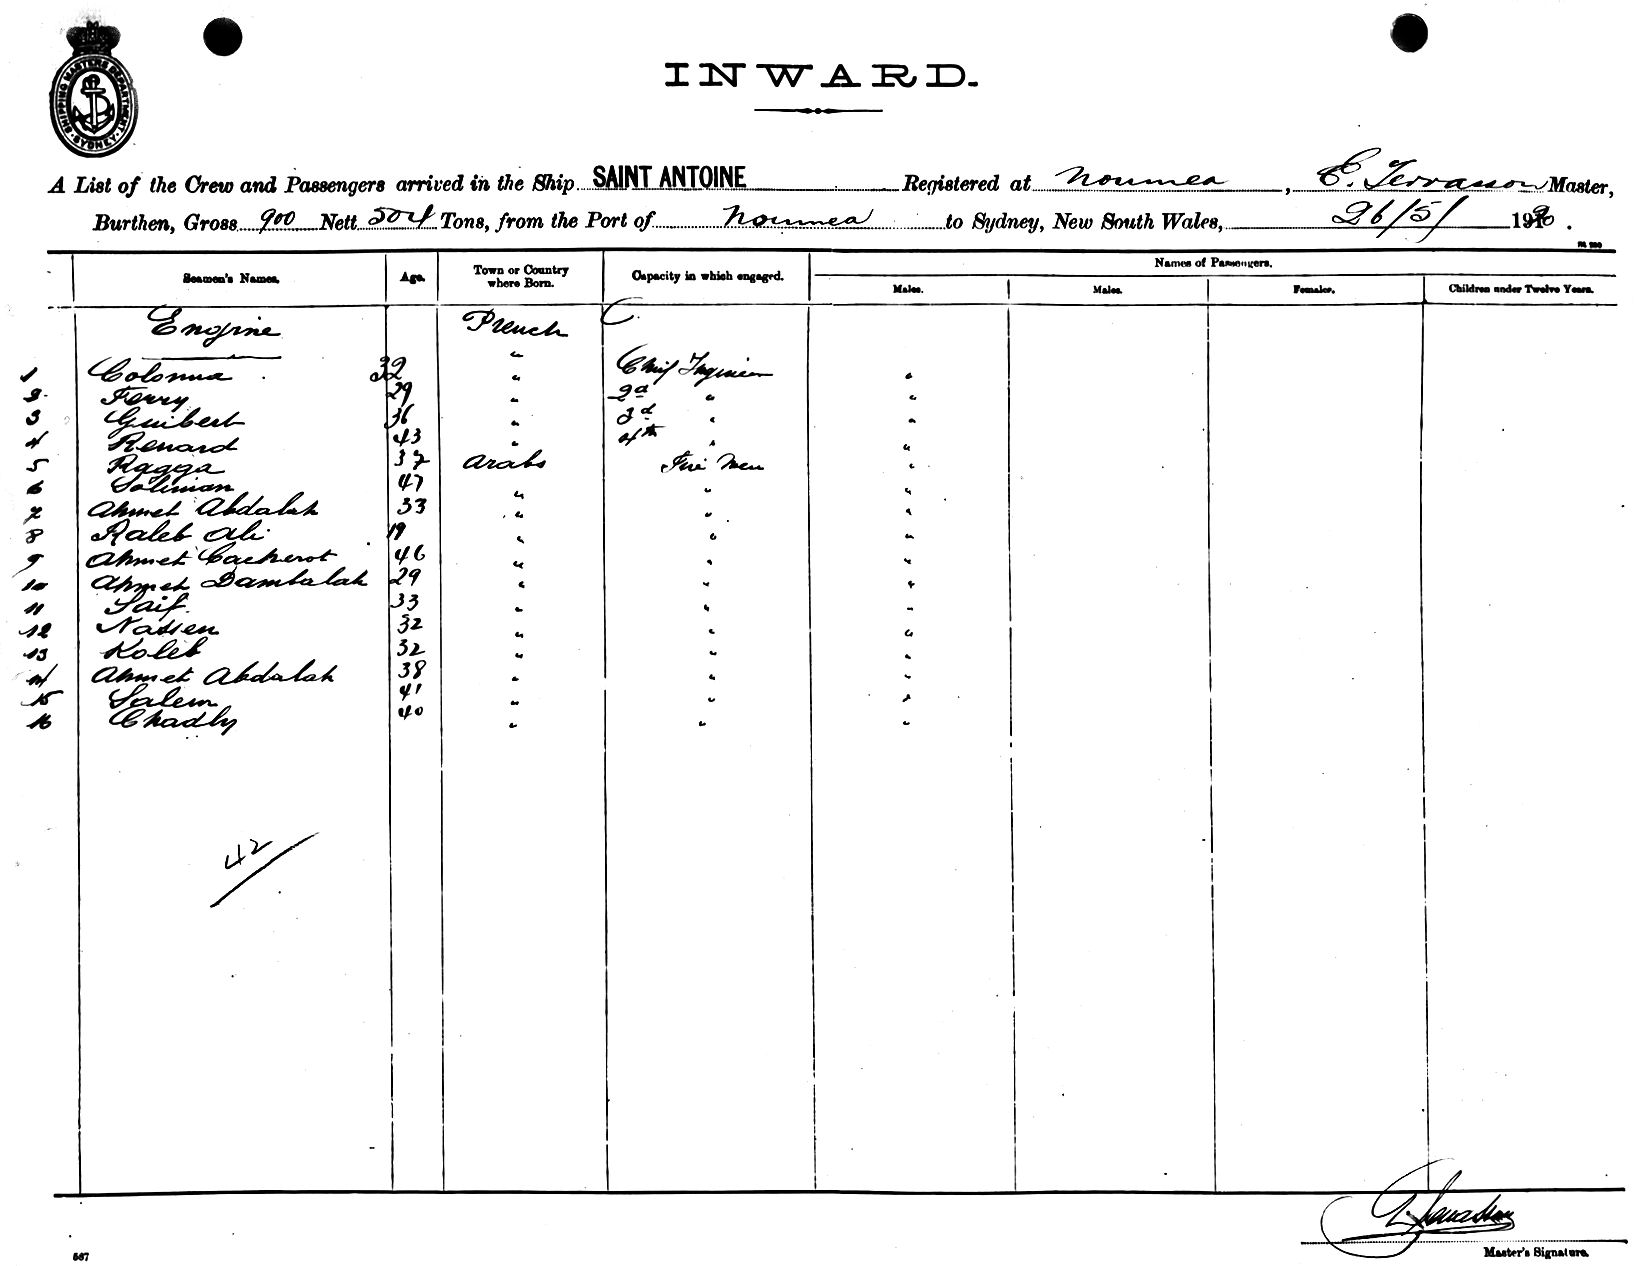 SHIPPING MASTERS DEPARTMENT SYDNEY
INWARD.
A List of the Crew and Passengers arrived in the Ship SAINT ANTOINE Registered at Noumea, E. Terrasson Master,
Burthen, Gross 900 Nett 504 Tons, from the Port of Noumea to Sydney, New South Wales, 26/5/ 1920.
Seamen's Names. Age. Town or Country where Born. Capacity in which engaged. Names of Passengers.
Males. Males. Females. Children under Twelve Years.
Engine French C
"
1 Colonna 32 " Chief Ingineer "
2 Ferry 29 " 2d " "
3 Guibert 36 " 3d " "
4 Renard 43 " 4th " "
5 Ragga 37 Arabs Fire Men "
6 Soliman 47 " " "
7 Ahmet Abdalah 33 " " "
8 Raleb Ali 19 " " "
9 Ahmet Cacherot 46 " " "
10 Ahmet Dambalah 29 " " "
11 Saif 33 " " "
12 Nassen 32 " " "
13 Koleb 32 " " "
14 Ahmet Abdalah 38 " " "
15 Salem 41 " " "
16 Chadly 40 " " "
42
Master's Signature.
567